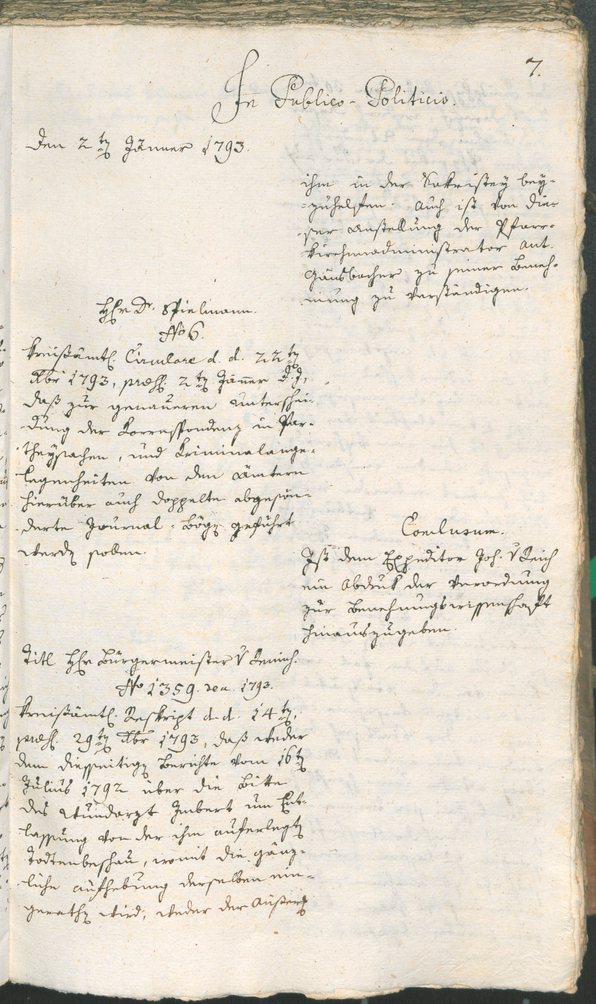 7.
In Publico-Politicis.
Den 2ten Jänner 1793.
ihm in der Sakristey bey-
-zuhelffen. Auch ist von die-
-ser Anstellung der Pfarr-
-kirchenadministrator Ant.
Gänsbacher zu seiner Beneh-
mung zu verständigen.
Hhr Dr. Spielmann.
No 6.
Kreisämtl. Circulare d. d. 22ten
Xbr 1793, præs. 2ten Jänner d. J.,
daß zur genaueren Unterschei-
dung der Korrespondenz in Par-
theysachen, und Kriminalange-
legenheiten von den Ämtern
hierüber auch doppelte abgesön-
derte Journal-Bögen geführt
werden sollen.
Conclusum.
Ist dem Expeditor Joh. v Reich
ein Abdruk der Verordnung
zur Benehmungswissenschaft
hinauszugeben.
Titl Hhr Bürgermeister v
No 1359. 1793.
Kreisämtl. Reskript d. d. 14ten,
præs. 29ten Xbr 1793, daß weder
dem diesseitigen Berichte vom 16ten
Julius 1792 über die Bitte
des Wundarzt Imbert um Ent-
lassung von der ihm auferlegten
Todtenbeschau, womit die gänz-
liche Aufhebung derselben ein-
gerathen wird, weder der Äußerung